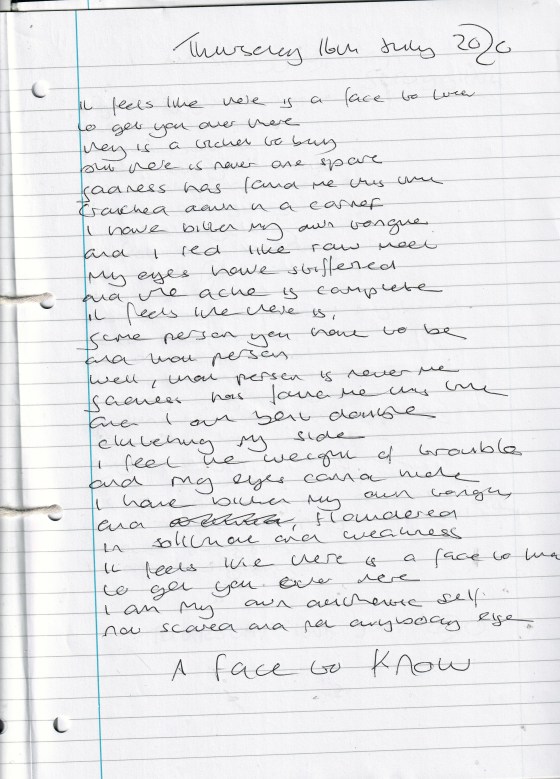 Thursday 16th July 2020
it feels like there is a face to
to get you over there
is a to buy
but there is never one spare
sadness has found me this time
crouched down in a corner
I have bitten my own tongue
and I red like raw meat
my eyes have stiffened
and the ache is complete
it feels like there is,
some person you have to be
and that person
well, that person is never me
sadness has found me this time
and I am bent double
clutching my side
i feel the weight of trouble
and my eyes cannot hide
I have bitten my own tongue
and floundered
in solitude and weakness
it feels like there is a face to
to get you over here
I am my own authentic self
now scared and not anybody else
A face to Know